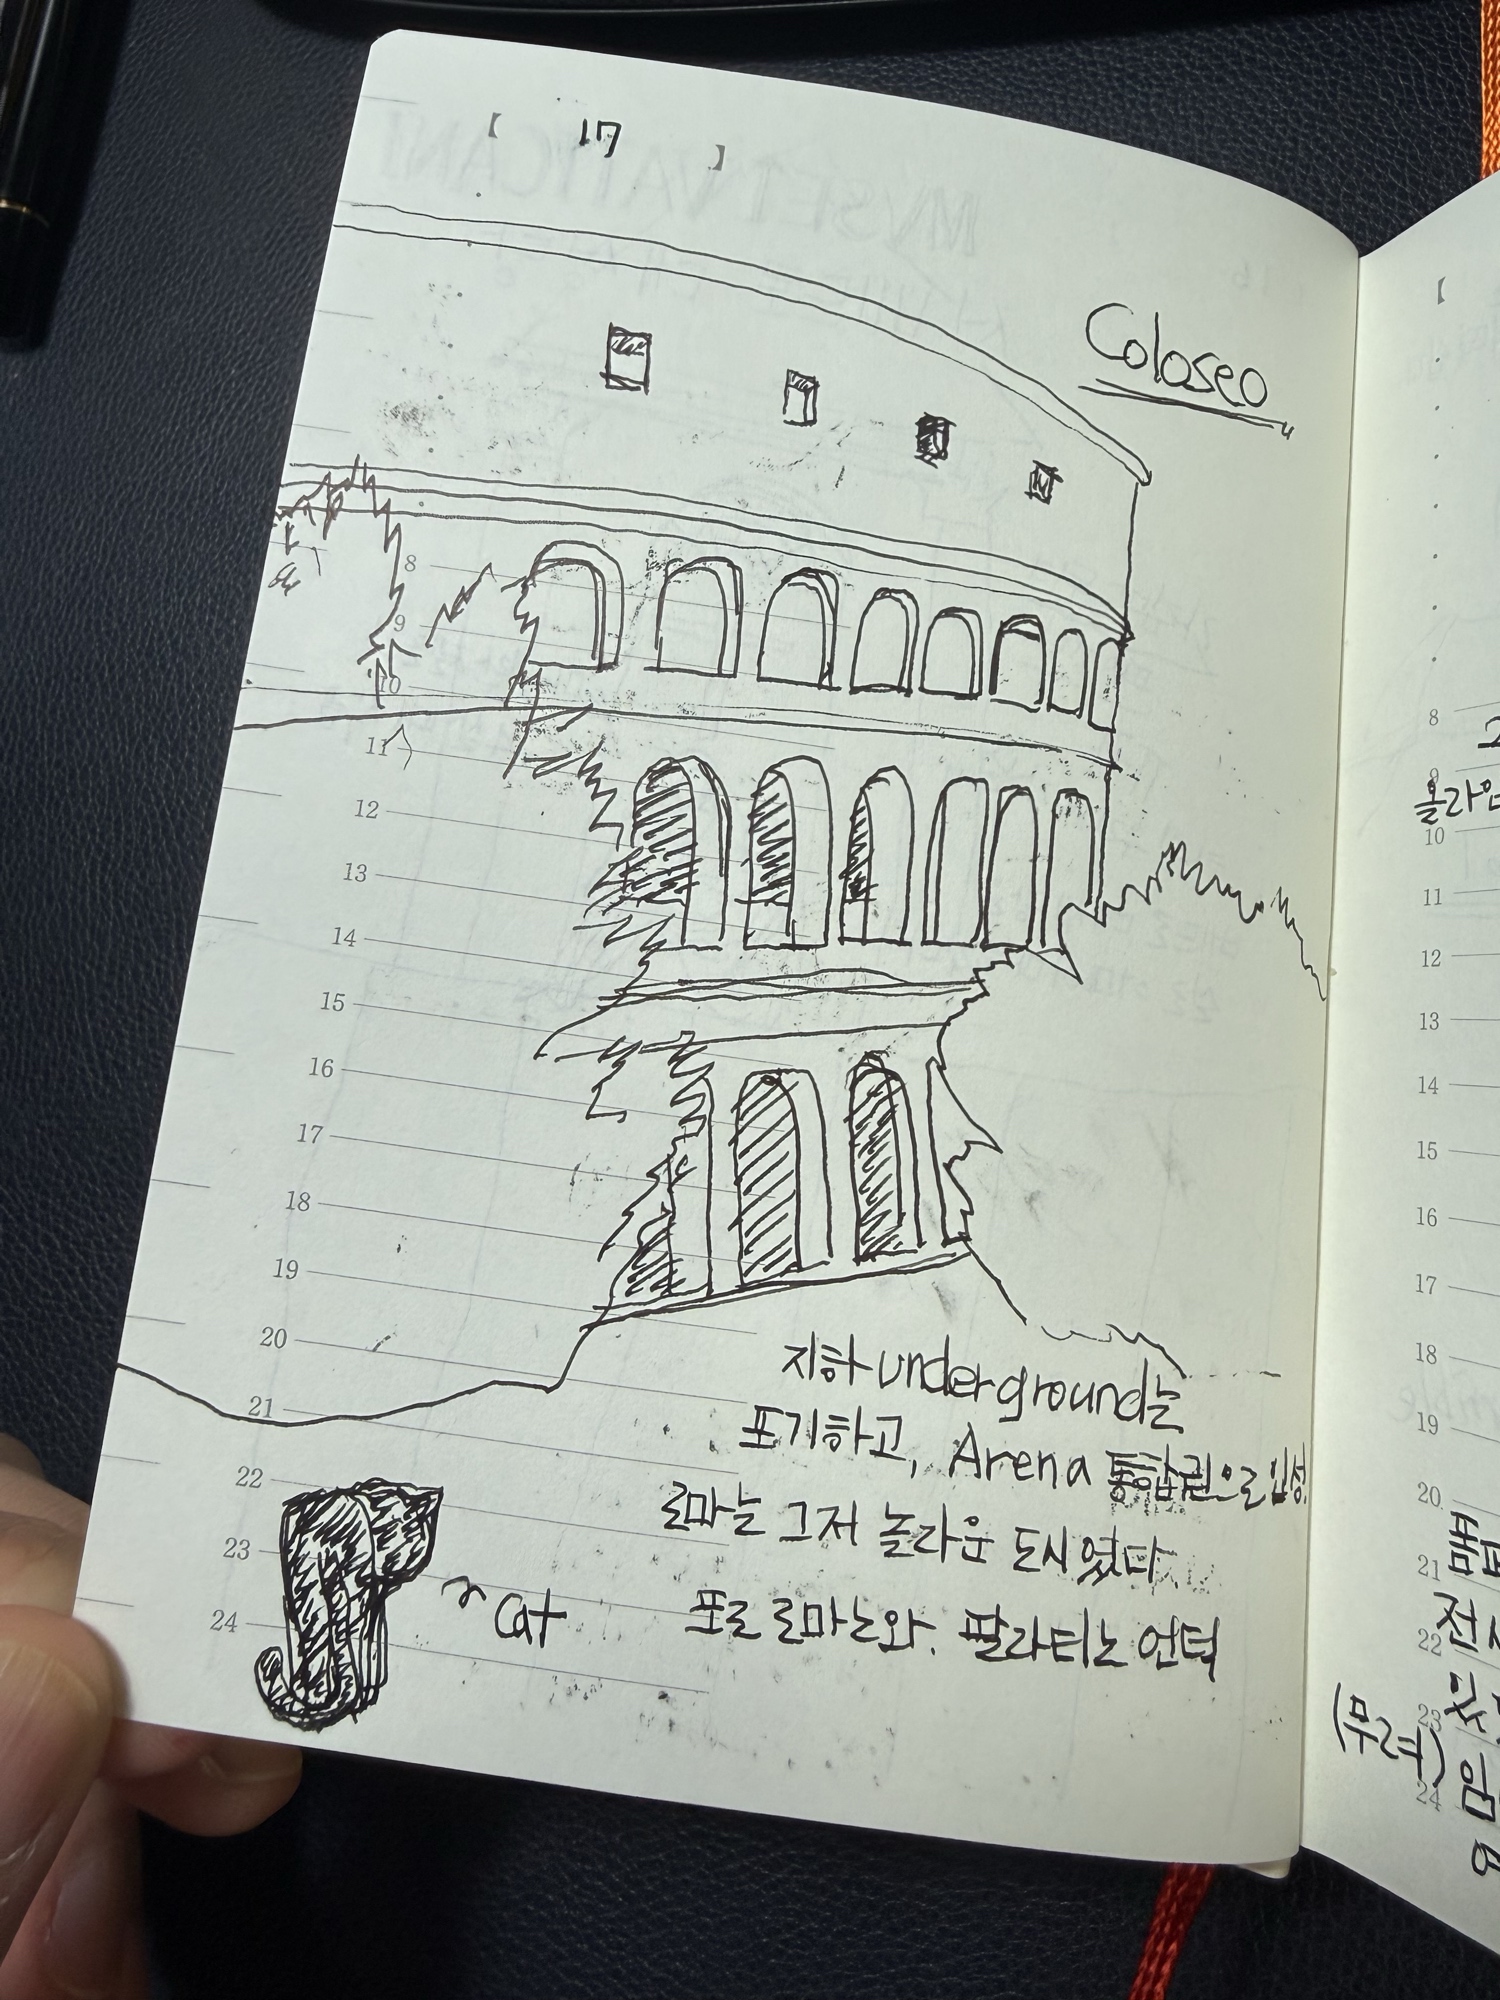 【 17 】
Coloseo
8
9
10
11
12
13
14
15
16
17
18
19
20
21
22
23
24
지하 underground는
포기하고, Arena 통합권으로 입장
로마는 그저 놀라운 도시였다
포로 로마노와. 팔라티노 언덕
cat
【
8
9
10
11
12
13
14
15
16
17
18
19
20
21
22
23
24
(무려)